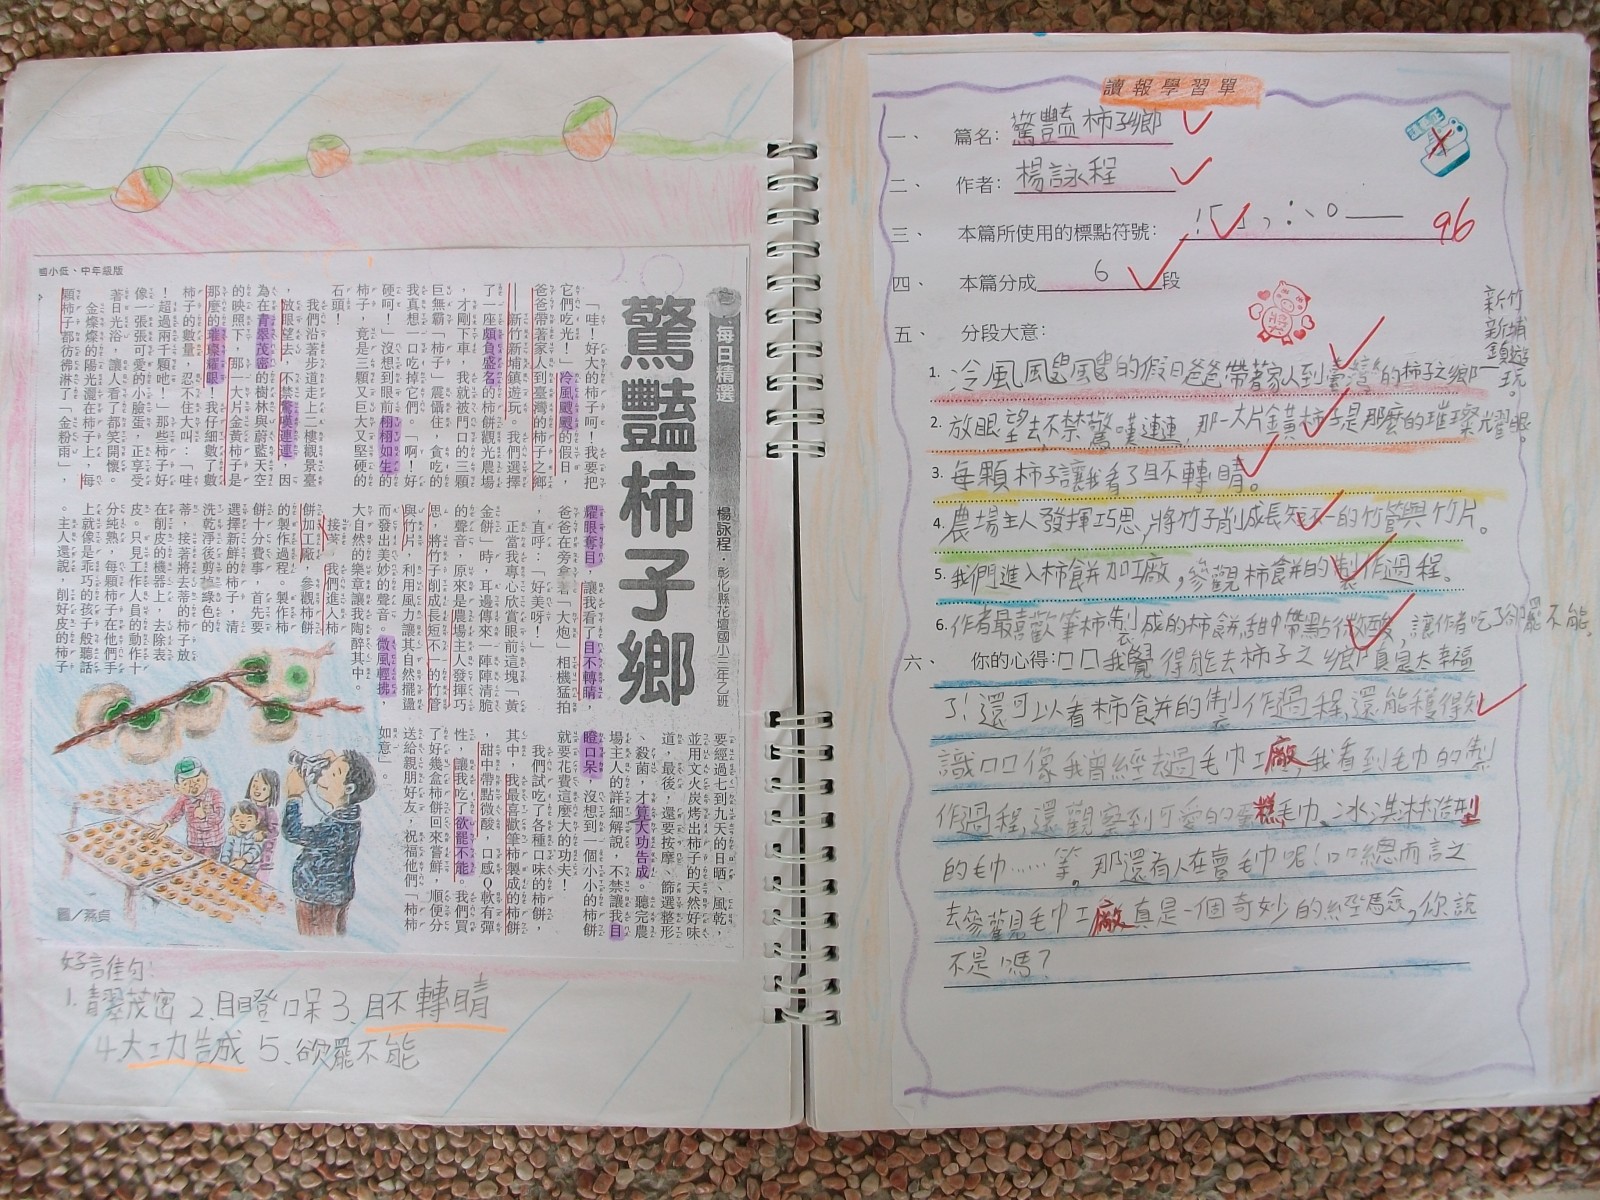 國小低、中年級版
每日精選
驚豔柿子鄉
楊詠程‧彰化縣花壇國小三年乙班
「哇!好大的柿子呵!我要把
它們吃光!」冷風颼颼的假日,
爸爸帶著家人到臺灣的柿子之鄉
──新竹新埔鎮遊玩。我們選擇
了一座頗負盛名的柿餅觀光農場
,才剛下車,我就被門口的三顆
巨無霸「柿子」震懾住,貪吃的
我真想一口吃掉它們。「啊!好
硬呵!」沒想到眼前栩栩如生的
柿子,竟是三顆又巨大又堅硬的
石頭!
我們沿著步道走上二樓觀景臺
,放眼望去,不禁驚嘆連連,因
為在青翠茂密的樹林與蔚藍天空
的映照下,那一大片金黃柿子是
那麼的璀璨耀眼!我仔細數了數
柿子的數量,忍不住大叫:「哇
!超過兩千顆吔!」那些柿子好
像一張張可愛的小臉蛋,正享受
著日光浴,讓人看了都笑開懷。
金燦燦的陽光灑在柿子上,每
顆柿子都彷彿淋了「金粉雨」,
耀眼奪目,讓我看了目不轉睛,
爸爸在旁拿著「大炮」相機猛拍
,直呼:「好美呀!」
正當我專心欣賞眼前這塊「黃
金餅」時,耳邊傳來一陣陣清脆
的聲音,原來是農場主人發揮巧
思,將竹子削成長短不一的竹管
與竹片,利用風力讓其自然擺盪
而發出美妙的聲音。微風輕拂,
大自然的樂章讓我陶醉其中。
接著,我們進入柿
餅加工廠,參觀柿餅
的製作過程。製作柿
餅十分費事,首先要
選擇新鮮的柿子,清
洗乾淨後剪掉綠色的
蒂,接著將去蒂的柿子放
在削皮的機器上,去除表
皮。只見工作人員的動作十
分純熟,每顆柿子在他們手
上就像是乖巧的孩子般聽話
。主人還說,削好皮的柿子
要經過七到九天的日晒、風乾,
並用文火炭烤出柿子的天然好味
道,最後,還要按摩、篩選整形
、殺菌,才算大功告成。聽完農
場主人的詳細解說,不禁讓我目
瞪口呆,沒想到一個小小的柿餅
就要花費這麼大的功夫!
我們試吃了各種口味的柿餅,
其中,我最喜歡筆柿製成的柿餅
,甜中帶點微酸,口感Q軟有彈
性,讓我吃了欲罷不能。我們買
了好幾盒柿餅回來嘗鮮,順便分
送給親朋好友,祝福他們「柿柿
如意」。
圖/蒸貞
好言佳句:
1.青翠茂密 2、目瞪口呆 3、目不轉睛
4.大功告成 5、欲罷不能
讀報學習單
一、 篇名: 驚豔柿子鄉
二、 作者: 楊詠程
三、 本篇所使用的標點符號: !「」,:、。——
96
四、 本篇分成 6 段
五、 分段大意:
1. 冷風颼颼的假日爸爸帶著家人到臺灣的柿子之鄉—新竹新埔鎮遊玩。
2. 放眼望去不禁驚嘆連連,那一大片金黃柿子是那麼的璀璨耀眼。
3. 每顆柿子讓我看了目不轉睛。
4. 農場主人發揮巧思,將竹子削成長短不一的竹管與竹片。
5. 我們進入柿餅加工廠,參觀柿餅的製作過程。
6. 作者最喜歡筆柿製成的柿餅甜中帶點微酸,讓作者吃了欲罷不能。
六、 你的心得:口口我覺得能去柿子之鄉真是太幸福
了!還可以看柿餅的製作過程,還能獲得知
識口口像我曾經去過毛巾工廠,我看到毛巾的製
作過程,還觀察到可愛的蛋糕毛巾、冰淇淋造型
的毛巾……等。那還有人在賣毛巾呢!口口總而言之
去參觀毛巾工廠真是一個奇妙的經驗,你說
不是嗎?